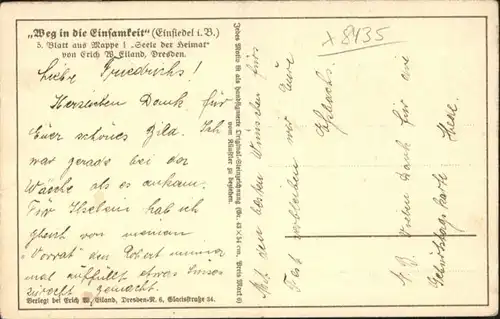 „Weg in die Einsamkeit“ (Einsiedel i. B.)
5. Blatt aus Mappe 1 „Seele der Heimat“
von Erich W. Eiland, Dresden.
Liebe Friedrichs!
Herzlichen Dank für
Euer schönes Bild. Ich
war gerade bei der
Wäsche als es ankam.
Für Ilselein hab ich
gleich von meinem
„Vorrat“ den Robert immer
mal auffüllt etwas
zurecht gemacht.
Verlegt bei Erich W. Eiland, Dresden-N. 6, Glacisstraße 34.
Jedes Motiv ist als handsignierte Original-Steinzeichnung (Gr. 43×34 cm, Preis Mark 6)
vom Künstler zu beziehen.
x 8435
Mit den besten Wünschen fürs
Fest verbleiben wir Eure
Vielen Dank für die
Geburtstagskarte